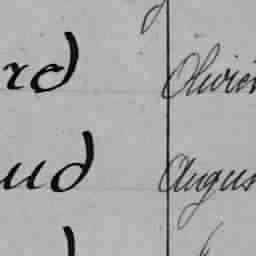 rd Olivier
ud Augus